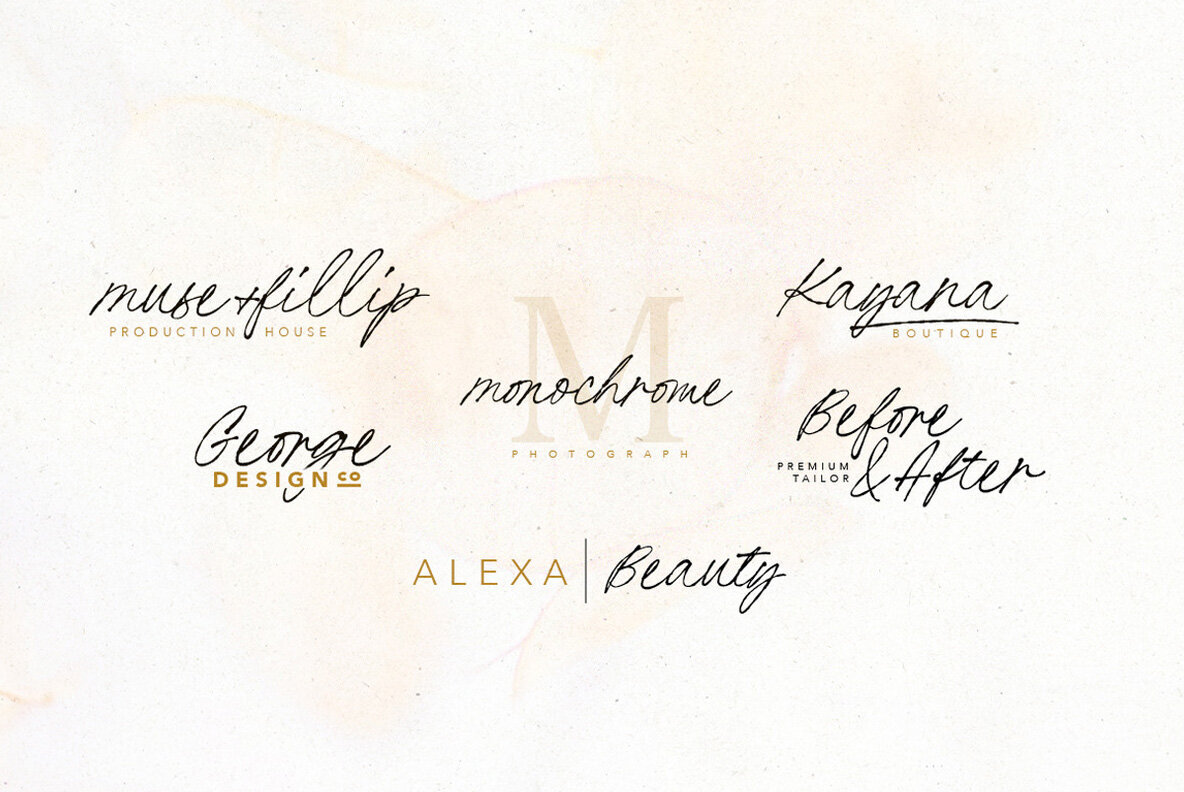 muse + fillip
PRODUCTION HOUSE
George
DESIGN CO
M
monochrome
PHOTOGRAPH
Kayana
BOUTIQUE
Before
& After
PREMIUM
TAILOR
ALEXA | Beauty